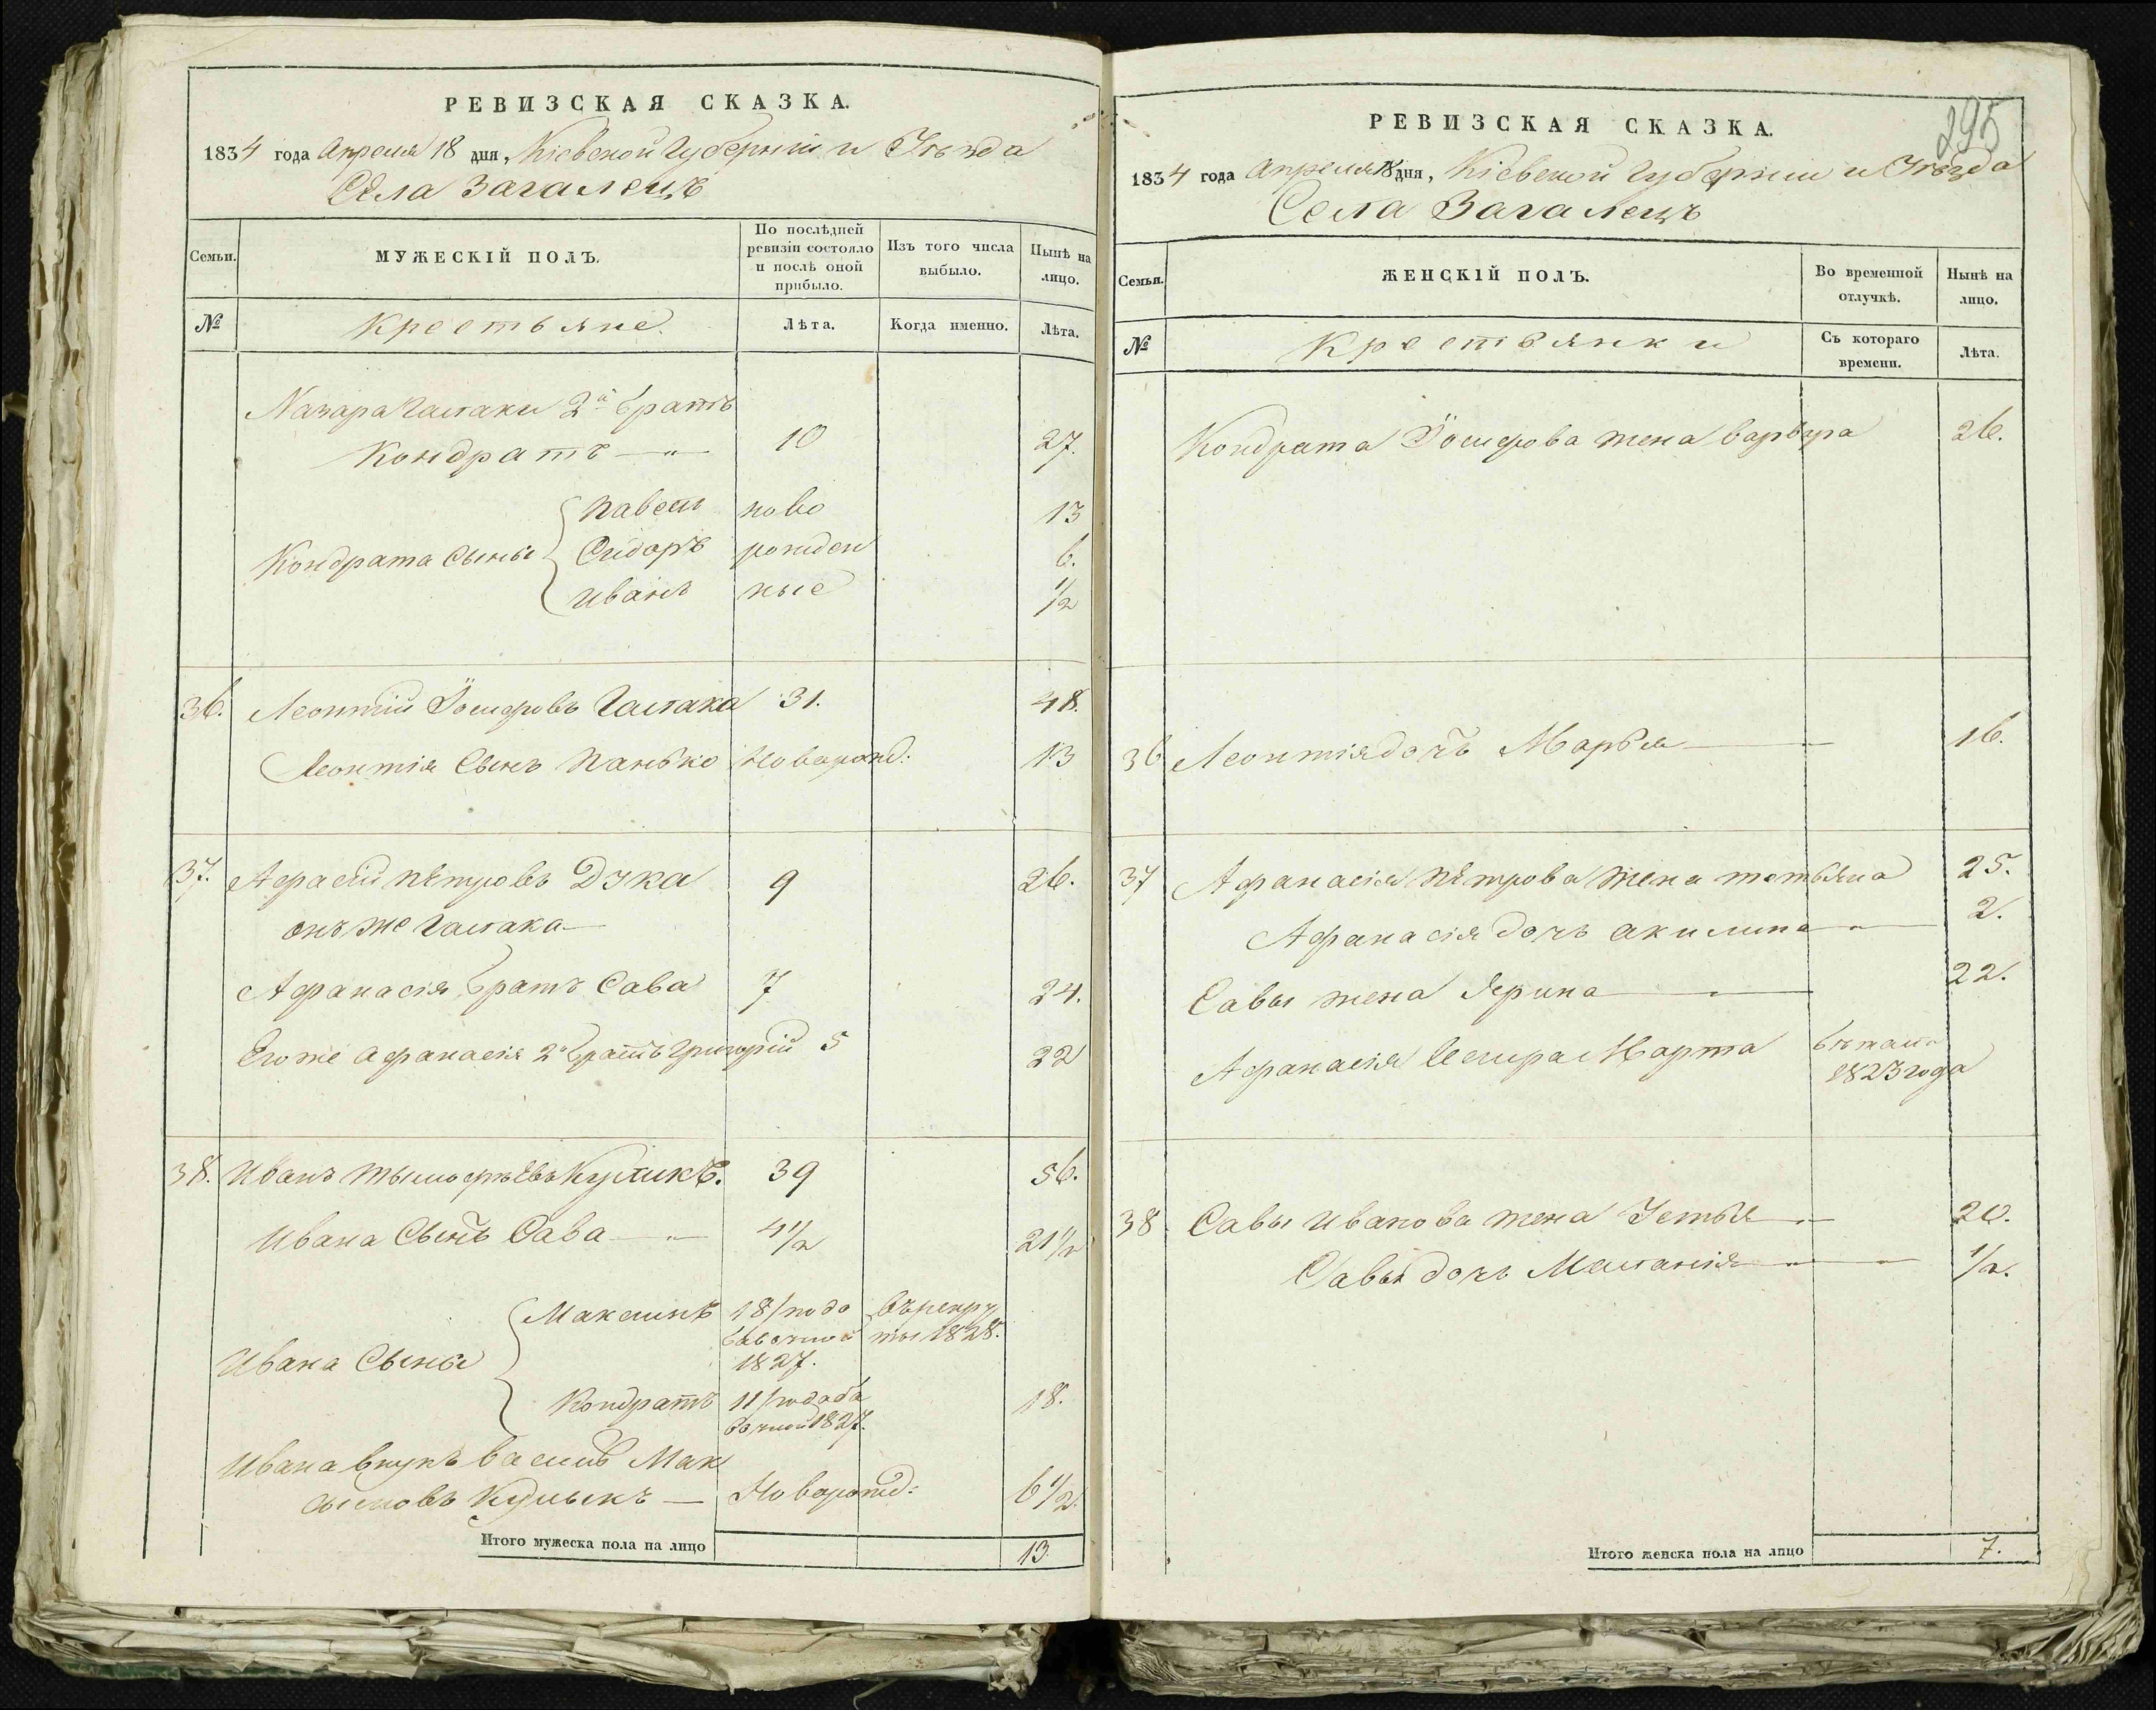 РЕВИЗСКАЯ СКАЗКА.
1834 года Апреля 18 дня, Кіевской Губерніи и Уѣзда
Села Загалецъ
Семьи.
МУЖЕСКІЙ ПОЛЪ.
По послѣдней
ревизіи состояло
и послѣ оной
прибыло.
Изъ того числа
выбыло.
Нынѣ на
лицо.
№
Крестьяне.
Лѣта.
Когда именно.
Лѣта.
Назара Галаки 2й братъ
Кондратъ — " — 10 27.
Павелъ ново 13
Кондрата Сыны Сидоръ рожден 6.
Иванъ ные 1/2
36. Леонтій Іосифовъ Галака 31. 48.
Леонтія Сынъ ПанькоНоворожд: 13
37. Афасій Пѣтровъ Дука 9 26.
онъ же Галака —
Афанасія братъ Сава 7 24.
Его же Афанасія 2й братъ Григорій 5 22
38. Иванъ Тымофѣевъ Куликъ. 39 56.
Ивана Сынъ Сава — " — 4 1/2 21 1/2
Максимъ 18/по до въ рекру
бавочной ты 1828.
Ивана Сыны 1827.
Кондратъ 11/по доба 18.
вочной 1827.
Ивана внукъ Василь Мак
сымовъ Кулыкъ — Новорожд: 6 1/2.
Итого мужеска пола на лицо 13
295
РЕВИЗСКАЯ СКАЗКА.
1834 года Апреля 18 дня, Кіевской Губерніи и Уѣзда
Села Загалецъ
Семьи.
ЖЕНСКІЙ ПОЛЪ.
Во временной
отлучкѣ.
Нынѣ на
лицо.
№
Крестьянки
Съ котораго
времени.
Лѣта.
Кондрата Іосифова жена Варвара 26.
36 Леонтія дочъ Марья — 16.
37 Афанасія Пѣтрова жена Татьяна 25.
Афанасія дочъ Акилина — " — 2.
Савы жена Ярина — 22.
Афанасія Сестра Марта бѣжала
1823 года
38. Савы Иванова жена Устья — " — 20.
Савы дочъ Маланія — " — 1/2.
Итого женска пола на лицо 7.